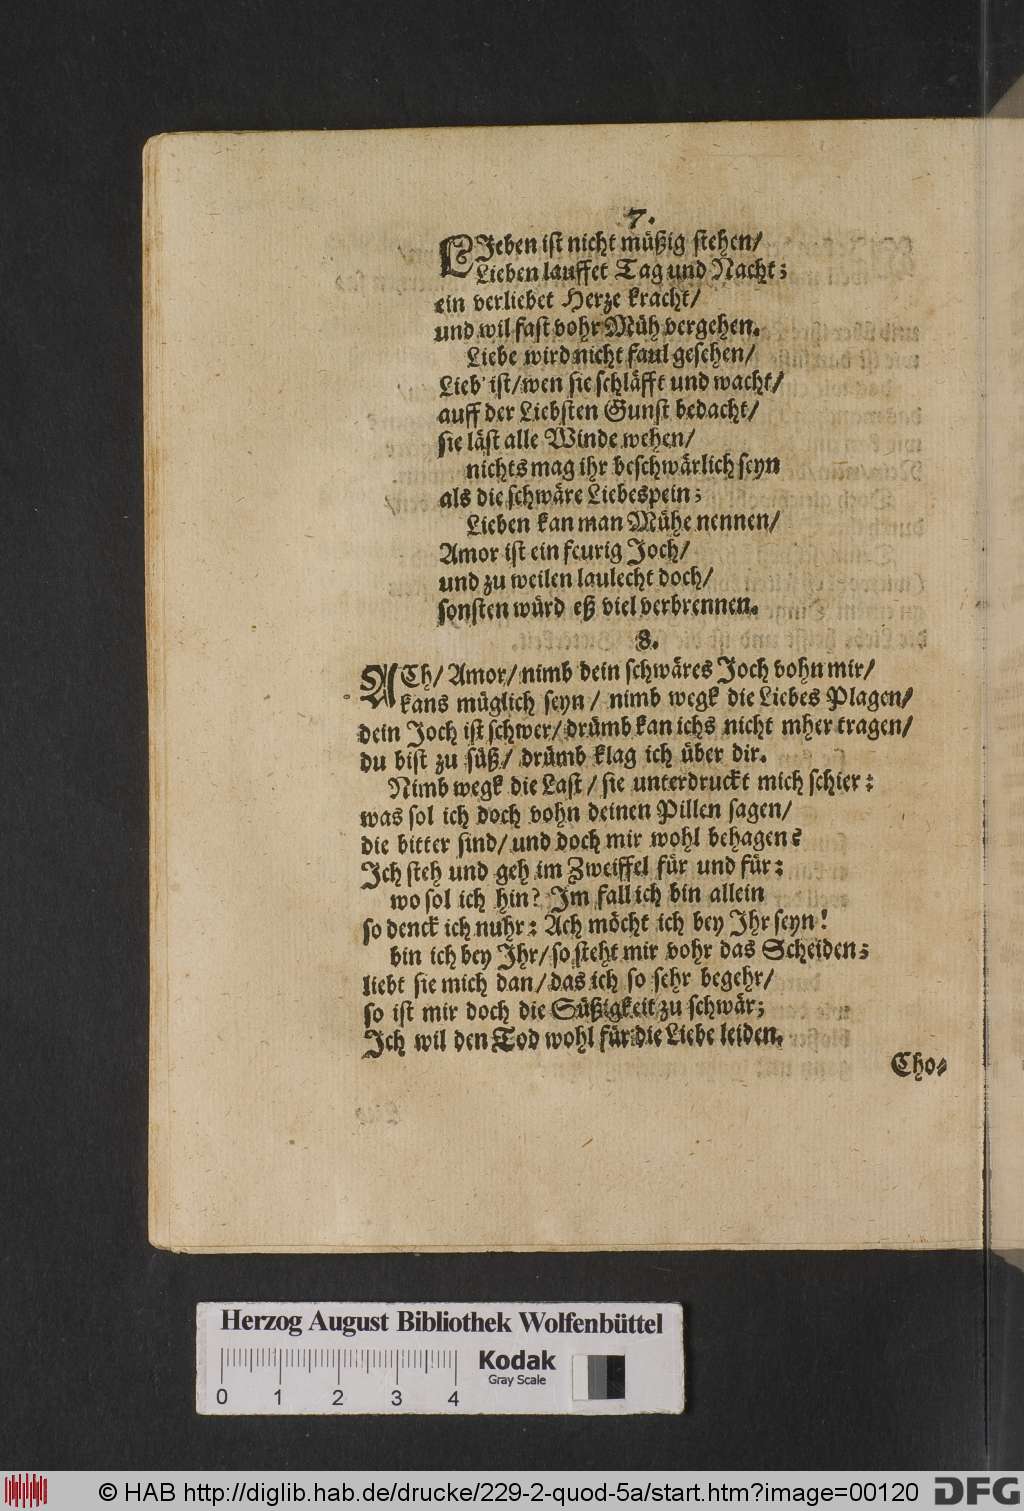 7.
LJeben ist nicht müßig stehen/
Lieben lauffet Tag und Nacht;
ein verliebet Herze kracht/
und wil fast vohr Müh vergehen.
Liebe wird nicht faul gesehen/
Lieb' ist/wen sie schläfft und wacht/
auff der Liebsten Gunst bedacht/
sie läst alle Winde wehen/
nichts mag ihr beschwärlich seyn
als die schwäre Liebespein;
Lieben kan man Mühe nennen/
Amor ist ein feurig Joch/
und zu weilen laulecht doch/
sonsten würd eß viel verbrennen.
8.
ACh/ Amor/ nimb dein schwäres Joch vohn mir/
kans müglich seyn/ nimb wegk die Liebes Plagen/
dein Joch ist schwer/ drümb kan ichs nicht mher tragen/
du bist zu süß/ drümb klag ich über dir.
Nimb wegk die Last/ sie unterdruckt mich schier:
was sol ich doch vohn deinen Pillen sagen/
die bitter sind/ und doch mir wohl behagen?
Jch steh und geh im Zweiffel für und für:
wo sol ich hin? Jm fall ich bin allein
so denck ich nuhr: Ach möcht ich bey Jhr seyn!
bin ich bey Jhr/ so steht mir vohr das Scheiden;
liebt sie mich dan/ das ich so sehr begehr/
so ist mir doch die Süßigkeit zu schwär;
Jch wil den Tod wohl für die Liebe leiden.
Cho-
Herzog August Bibliothek Wolfenbüttel
Kodak
Gray Scale
0 1 2 3 4
© HAB http://diglib.hab.de/drucke/229-2-quod-5a/start.htm?image=00120
DFG